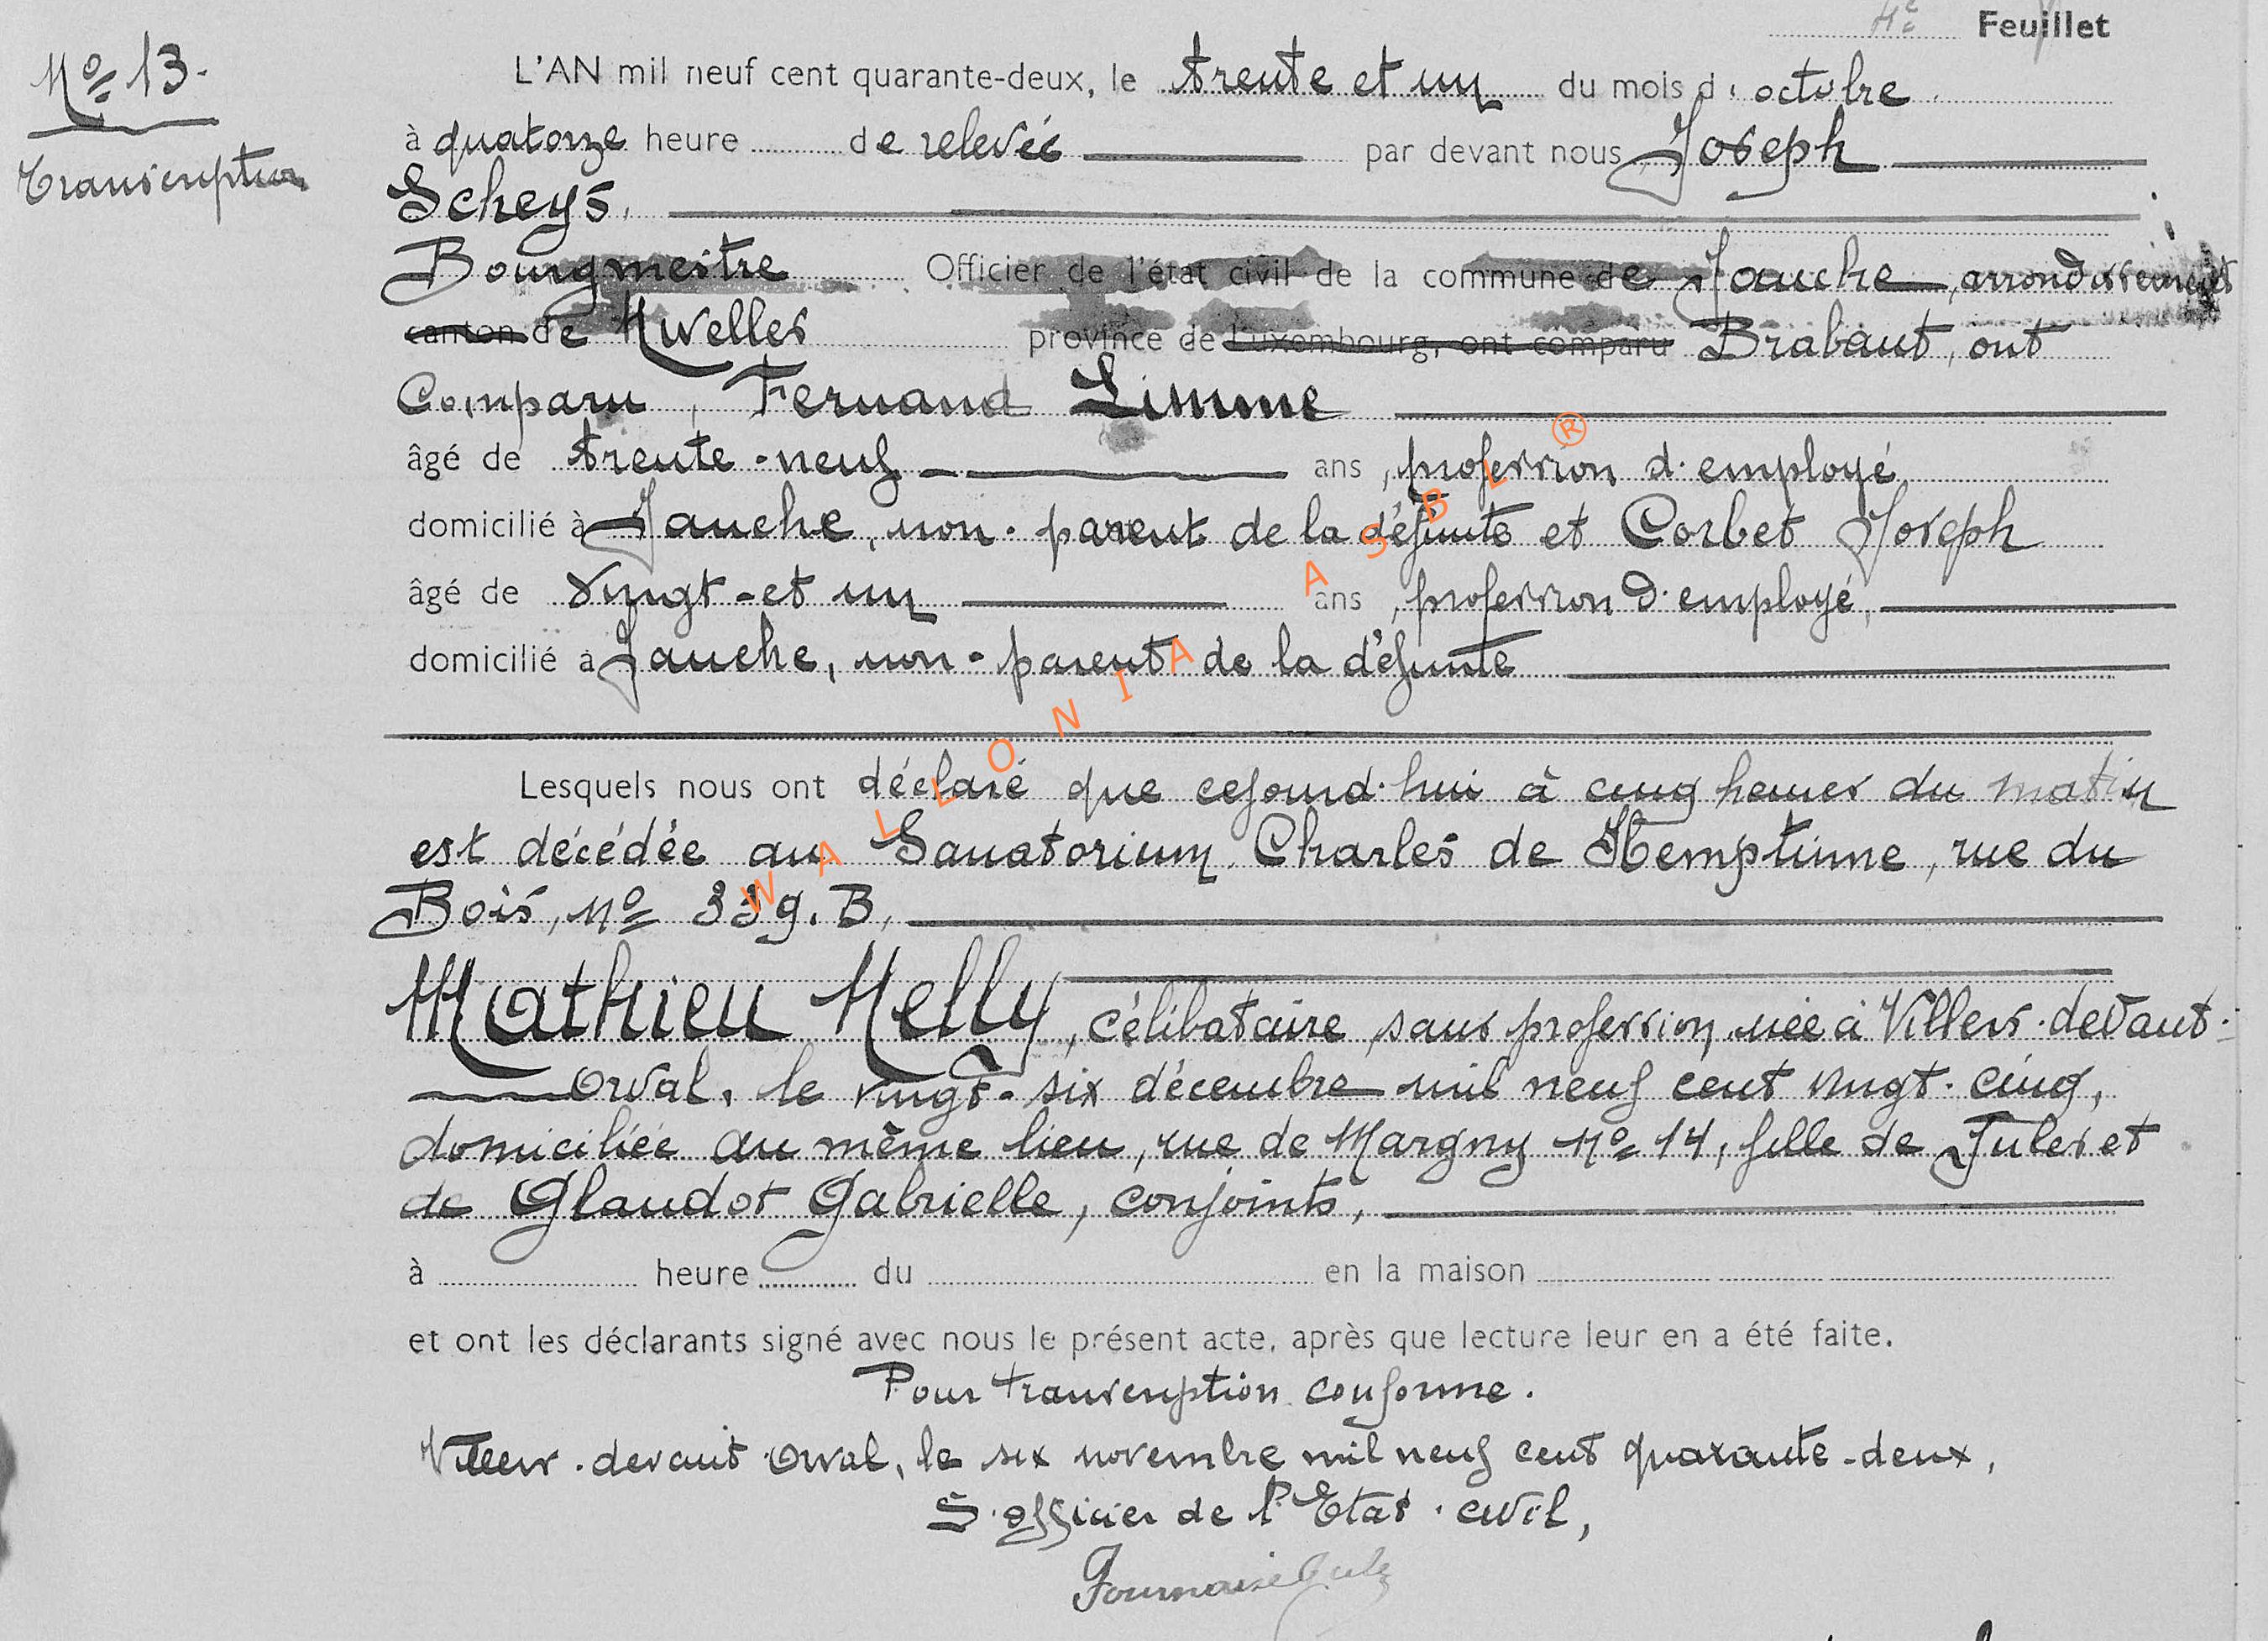 4e Feuillet
No 13.
Transcription
L'AN mil neuf cent quarante-deux, le trente et un du mois d'octobre
à quatorze heure de relevée par devant nous Joseph
Scheys,
Bourgmestre Officier de l'état civil de la commune de Jauche, arrondissement
canton de Nivelles province de Luxembourg, ont comparu Brabant, ont
Comparu, Fernand Limme
âgé de trente-neuf ans, profession d'employé
domicilié à Jauche, non-parent de la défunte et Corbet Joseph
âgé de vingt-et un ans, profession d'employé,
domicilié à Jauche, non-parent de la défunte
Lesquels nous ont déclaré que cejourd'hui à cinq heures du matin
est décédée au Sanatorium Charles de Hemptinne, rue du
Bois, no 339.B,
Mathieu Nelly, célibataire, sans profession, née à Villers-devant-
Orval, le vingt-six décembre mil neuf cent vingt-cinq,
domiciliée au même lieu, rue de Margny no 14, fille de Jules et
de Glaudot Gabrielle, conjoints,
à heure du en la maison
et ont les déclarants signé avec nous le présent acte, après que lecture leur en a été faite.
Pour transcription conforme.
Villers-devant-Orval, le six novembre mil neuf cent quarante-deux,
L'officier de l'Etat-civil,
WALLONIA ASBL ®